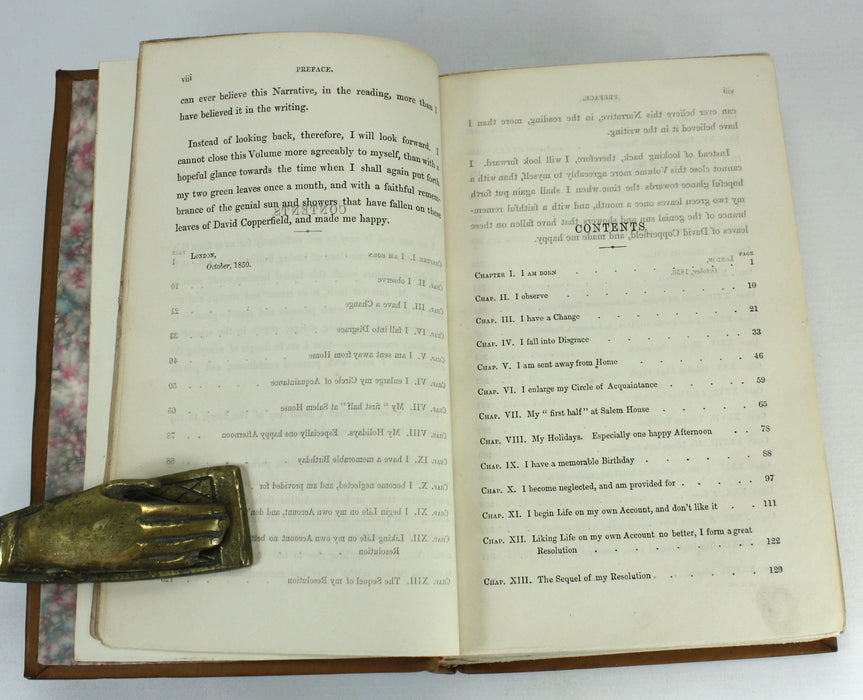 viii
PREFACE.
can ever believe this Narrative, in the reading, more than I
have believed it in the writing.
Instead of looking back, therefore, I will look forward. I
cannot close this Volume more agreeably to myself, than with a
hopeful glance towards the time when I shall again put forth
my two green leaves once a month, and with a faithful remem-
brance of the genial sun and showers that have fallen on these
leaves of David Copperfield, and made me happy.
London,
October, 1850.
CONTENTS.
PAGE
Chapter I. I am born . . . . 1
Chap. II. I observe . . . . . . . . 10
Chap. III. I have a Change . . . . . . . 21
Chap. IV. I fall into Disgrace . . . . . . . 33
Chap. V. I am sent away from Home . . . . . . 46
Chap. VI. I enlarge my Circle of Acquaintance . . . . . 59
Chap. VII. My "first half" at Salem House . . . . . 65
Chap. VIII. My Holidays. Especially one happy Afternoon . . 78
Chap. IX. I have a memorable Birthday . . . . . . 88
Chap. X. I become neglected, and am provided for . . . . . 97
Chap. XI. I begin Life on my own Account, and don't like it . . 111
Chap. XII. Liking Life on my own Account no better, I form a great
Resolution . . . . . . . 122
Chap. XIII. The Sequel of my Resolution . . . . . . 129